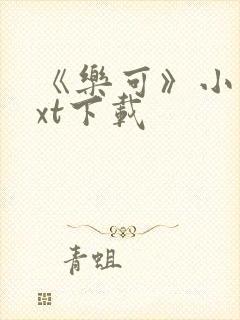 《樂可》小
xt下載
青蛆